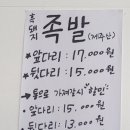 흑돼지
족발 (제주산)
앞다리 : 17.000원
뒷다리 : 15.000원
통으로 가져갈시 "할인"
앞다리 : 15.000원
뒷다리 : 13.000원